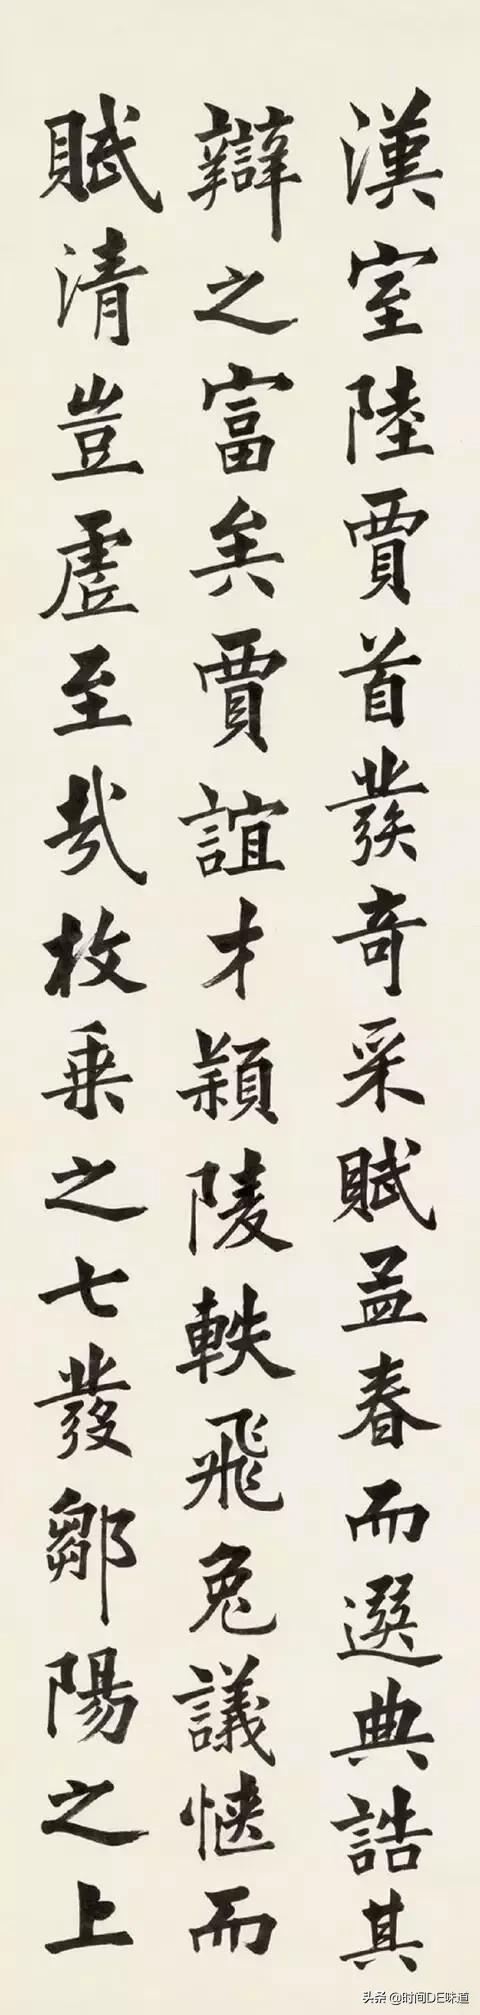 漢室陸賈首發奇采賦孟春而選典誥其
辯之富矣賈誼才穎陵軼飛兔議愜而
賦清豈虛至哉枚乗之七發鄒陽之上
头条 @时间DE味道